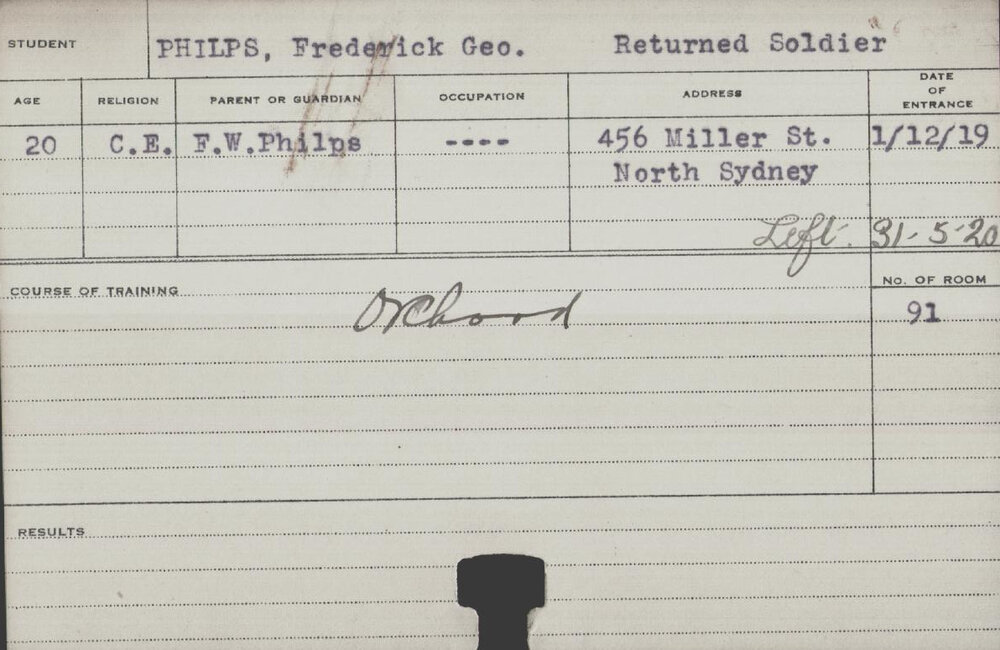 STUDENT PHILPS, Frederick Geo. Returned Soldier
AGE RELIGION PARENT OR GUARDIAN OCCUPATION ADDRESS DATE OF ENTRANCE
20 C.E. F.W.Philps ---- 456 Miller St. 1/12/19
North Sydney
Left. 31-5-20
COURSE OF TRAINING No. OF ROOM
Orchard 91
RESULTS